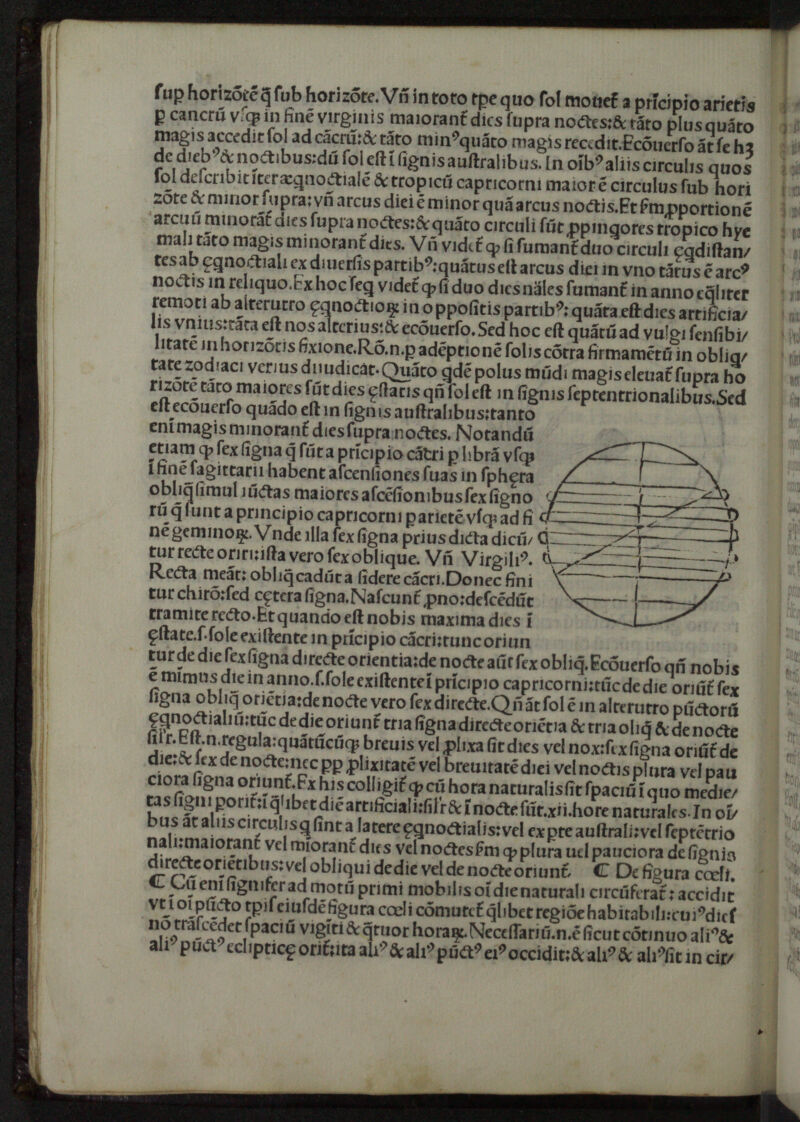 ſup horizōtē q̄ ſub horizōte. Vñ in toto tp̄e quo ſol mouet᷑ a prīcipio arietis
p cancrū vſq; in finē virginis maiorant᷑ dies ſupra noctes: & tāto plus quāto
magis accedit ſol ad cācrū: & tāto min⁹ quāto magis recedit. Ecōuerſo āt ſe hꝫ
de dieb⁹ & noctibus: dū ſol eſt ī ſignis auſtralibus. In oīb⁹ aliis circulis quos
ſol deſcribit īter æqnoctialē & tropicū capricorni maior ē circulus ſub hori
zōte & minor ſupra: vñ arcus diei ē minor quā arcus noctis. Et ẜm ꝓportionē
arcuū minorāt᷑ dies ſupra noctes: & quāto circuli ſūt ꝓpinqores tropico hye
mali tāto magis minorant᷑ dies. Vñ videt᷑ ꝙ ſi ſumant᷑ duo circuli ęqdiſtan/
tes ab ęqnoctiali ex diuerſis partib⁹: quātus eſt arcus diei in vno tātus ē arc⁹
noctis in reliquo. Ex hoc ſeq videt᷑ ꝙ ſi duo dies nāles ſumant᷑ in anno eq̄liter
remoti ab alterutro ęqnoctioꝝ in oppoſitis partib⁹: quāta eſt dies artificia/
lis vnius: tāta eſt nox alterius: & ecōuerſo. Sed hoc eſt quātū ad vulgi ſenſibi/
litatē in horizōtis fixione. Rō. n. p adēptionē ſolis cōtra firmamētū in obliq/
tate zodiaci verius diiudicāt. Quāto qdē polus mūdi magis eleuat᷑ ſupra ho
rizōtē tāto maiores ſūt dies ęſtatis qñ ſol eſt in ſignis ſeptentrionalibus. Sed
eſt ecōuerſo quādo eſt in ſignis auſtralibus: tanto
enī magis minorant᷑ dies ſupra noctes. Notandū
etiam ꝙ ſex ſigna q̄ ſūt a prīcipio cācri p librā vſq;
ī finē ſagittarii habent aſcenſiones ſuas in ſphęra
obliq̄ ſimul iūctas maiores aſcēſionibus ſex ſigno
rū q̄ ſunt a principio capricorni p arietē vſq; ad fi
nē geminoꝝ. Vnde illa ſex ſigna prius dicta dicū/
tur recte oriri: iſta vero ſex oblique. Vñ Virgili⁹.
Recta meāt: obliq̄ cadūt a ſidere cācri. Donec fini
tur chirō: ſed cętera ſigna. Naſcunt᷑ ꝓno: deſcēdūt
tramite recto. Et quando eſt nobis maxima dies ī
ęſtate. ſ. ſole exiſtente in prīcipio cācri: tunc oriun
tur de die ſex ſigna directe orientia: de nocte aūt ſex obliq̄. Ecōuerſo qñ nobis
ē mīmus dies in anno. ſ. ſole exiſtente ī prīcipio capricorni: tūc de die oriūt᷑ ſex
ſigna obliq̄ oriētia: de nocte vero ſex directe. Qñ āt ſol ē in alterutro pūctorū
ęqnoctialiū: tūc de die oriunt᷑ tria ſigna directe oriētia & tria obliq̄ & de nocte
ſilr. Eſt. n. regula: quātūcūq; breuis vel ꝓlixa ſit dies vel nox: ſex ſigna oriūt᷑ de
die: & ſex de nocte: nec pp ꝓlixitatē vel breuitatē diei vel noctis plura vel pau
ciora ſigna oriunt᷑. Ex his colligit᷑ ꝙ cū hora naturalis ſit ſpaciū ī quo medie/
tas ſigni porit᷑: ī q̄libet die artificiali: ſilr & ī nocte ſūt. xii. hore naturales. In oī/
bus āt aliis circulis q ſint a latere ęqnoctialis: vel ex pte auſtrali: vel ſeptētrio
nali: maiorant᷑ vel mīorant᷑ dies vel noctes ẜm ꝙ plura uel pauciora de ſignis
directe oriētibus: vel obliqui de die vel de nocte oriunt᷑. ☾ De figura cœli.
☾ Cū enī ſignifer ad motū primi mobilis oī die naturali circūferat᷑: accidit
vt ī oī pūcto tpiſ eiuſdē figura cœli cōmutet᷑ q̄libet regiōe habitabili: cui⁹ dieſ
nō trāſcēdet ſpaciū vigīti & q̄tuor horaꝝ. Neceſſariū. n. ē ſicut cōtinuo ali⁹ &
ali⁹ pūct⁹ eclipticę orit᷑: ita ali⁹ & ali⁹ pūct⁹ ei⁹ occidit: & ali⁹ & ali⁹ ſit in cir/